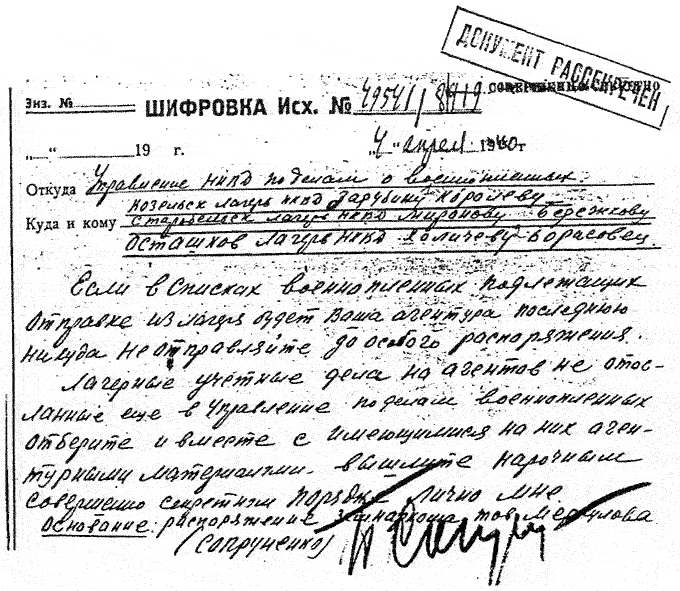 ДОКУМЕНТ РАССЕКРЕЧЕН
СОВЕРШЕННО СЕКРЕТНО
Экз. №
ШИФРОВКА Исх. № 49541/8419
„ “ 19 г.
„4“ апреля 1940г.
Откуда Управление НКВД по делам о военнопленных
Козельск лагерь НКВД Зарубину Королеву
Куда и кому Старобельск лагерь НКВД Миронову Бережкову
Осташков лагерь НКВД Холичеву - Борисовец
Если в списках военнопленных подлежащих
отправке из лагеря будет Ваша агентура последнюю
никуда не отправляйте до особого распоряжения.
Лагерные учетные дела на агентов не отос-
ланные еще в Управление по делам военнопленных
отберите и вместе с имеющимися на них аген-
турными материалами вышлите нарочным
совершенно секретным порядке лично мне
Основание: распоряжение замнаркома тов. Меркулова
(Сопруненко)